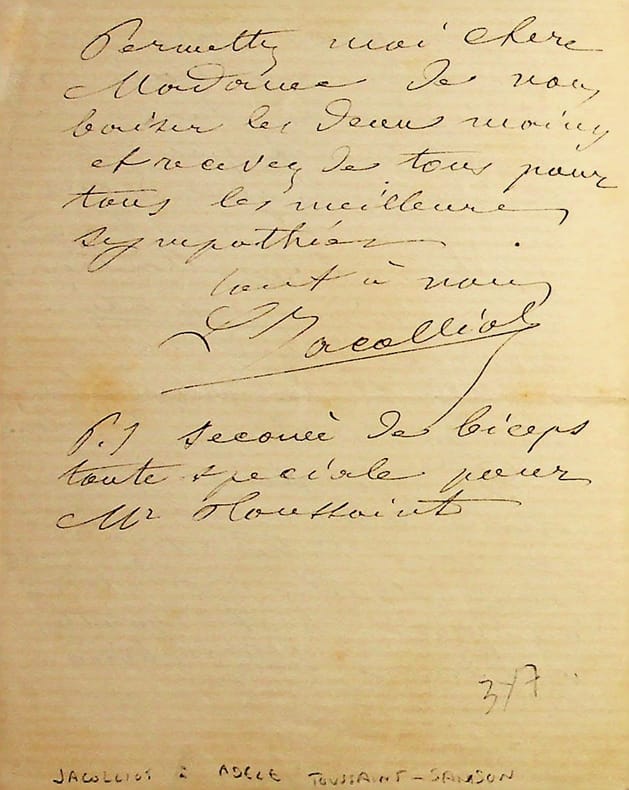 Permettez moi chere
Madame de vous
baiser les deux mains
et recevez de tous pour
tous les meilleures
sympathies.
tout à vous
L Jacolliot
P.S secouée de biceps
toute speciale pour
Mr Toussaint
347
JACOLLIOT à ADELE TOUSSAINT-SAMSON